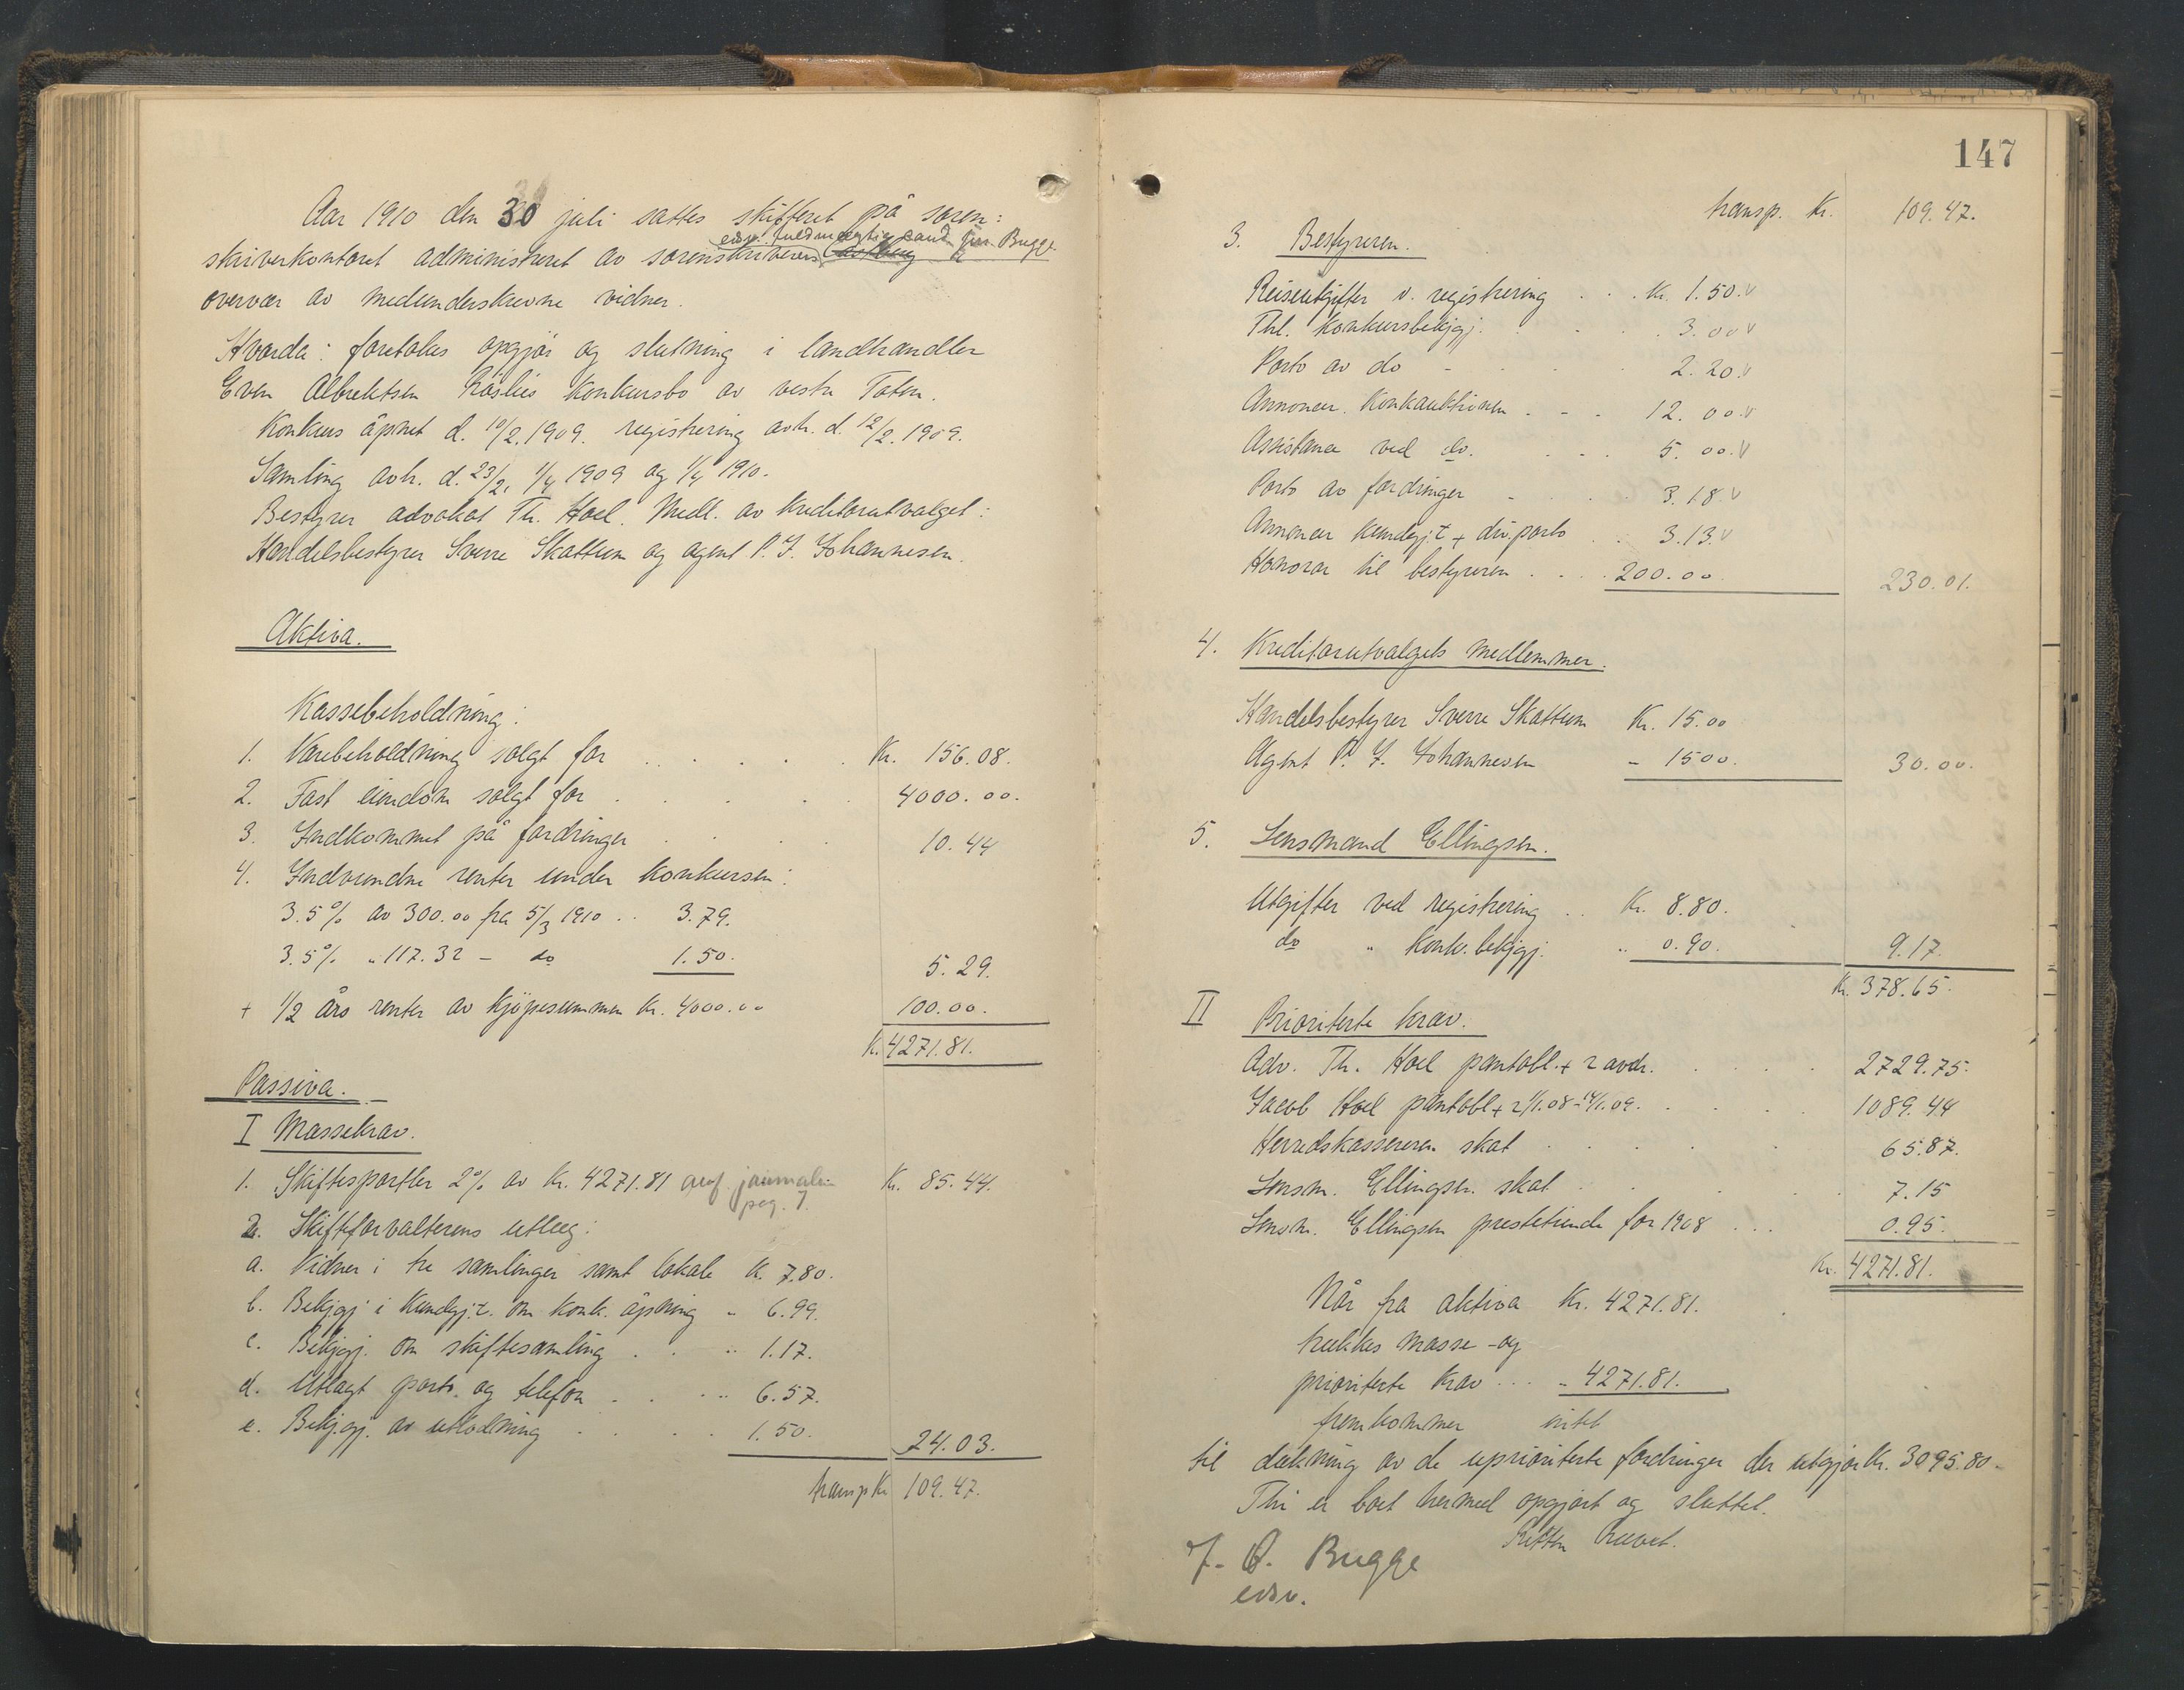 Aar 1910 den 30 juli sattes skifteret på soren:
edsv. fuldmægtig cand. jur. Bugge
skriverkontoret administreret av sorenskriverens
overvær av medunderskrevne vidner.
Hvorda: foretokes opgjör og slutning i landhandler
Even Albrektsen Röslies konkursbo av vestr. Toten.
Konkurs åpnet d. 10/2 1909. registrering avh. d. 12/2. 1909.
Samling avh. d. 23/2, 1/4 1909 og 1/4 1910.
Bestyrer advokat Th. Hoel. Medl. av kreditorutvalget:
Handelsbestyrer Sverre Skattum og agent P. J. Johannesen.
Aktiva.
Kassebeholdning:
1. Varebeholdning solgt for . . . . . Kr. 156.08.
2. Fast eiendom solgt for . . . . 4000.00.
3. Indkommet på fordringer . . . 10.44
4. Indvundne renter under konkursen:
3.5% av 300.00 fra 5/3 1910 .. 3.79.
3.5% " 117.32 - do 1.50. 5.29.
+ 1/2 års renter av kjöpesummen Kr. 4000.00 100.00.
K. 4271.81.
Passiva.
I Massekrav.
1. Skiftesportler 2% av Kr. 4271.81 anf. journalen Kr. 85.44.
pag. 7.
2. Skifteforvalterens utlæg:
a. Vidner i tre samlinger samt lokale K. 7.80.
b. Bekjgj i Kundgj.t. om konk. åpning - 6.99.
c. Bekjgj. om skiftesamling . . .. 1.17.
d. Utlagt porto. og telefon . . .. 6.57.
e. Bekjgj. av utlodning . . . . 1.50. 24.03.
transp Kr 109.47.
147
transp. Kr. 109.47.
3. Bestyreren.
Reiseutgifter v. registrering . . . Kr. 1.50. v
Thl. konkursbekjgj. . . . 3.00 v
Porto av do - . . . 2.20. v
Annoncer. konkauktionen . - . 12.00. v
Assistance ved do. . . . 5.00. v
Porto av fordringer - . . 3.18 v
Annoncer kundgj.t + div. porto . . 3.13. v
Honorar til bestyreren . . . . 200.00. 230.01.
4. Kreditorutvalgets medlemmer.
Handelsbestyrer Sverre Skattum Kr. 15.00
Agent P. J. Johannesen - 1500. 30.00.
5. Lensmand Ellingsen.
Utgifter ved registrering .. Kr. 8.80.
do " konk. bekjgj. .. 0.90. 9.17.
Kr. 378.65.
II Prioriterte krav.
Adv. Th. Hoel pantobl. + 2 avdr. . . . . 2729.75.
Jacob Hoel pantobl + 2 1/1.08 - 14/1.09. . . . 1089.44
Herredskassereren skat . . . . 65.87.
Lensm. Ellingsen skat . . . . 7.15
Lensm. Ellingsen prestetiende for 1908 ... 0.95.
Kr. 4271.81.
Når fra aktiva Kr. 4271.81.
trækkes masse - og
prioriterte krav ... - 4271.81.
fremkommer intet
til dækning av de uprioriterte fordringer der utgjör Kr. 3095.80.-
Thi er boet hermed opgjort og sluttet.
Retten hævet.
J. A. Bugge
edsv.